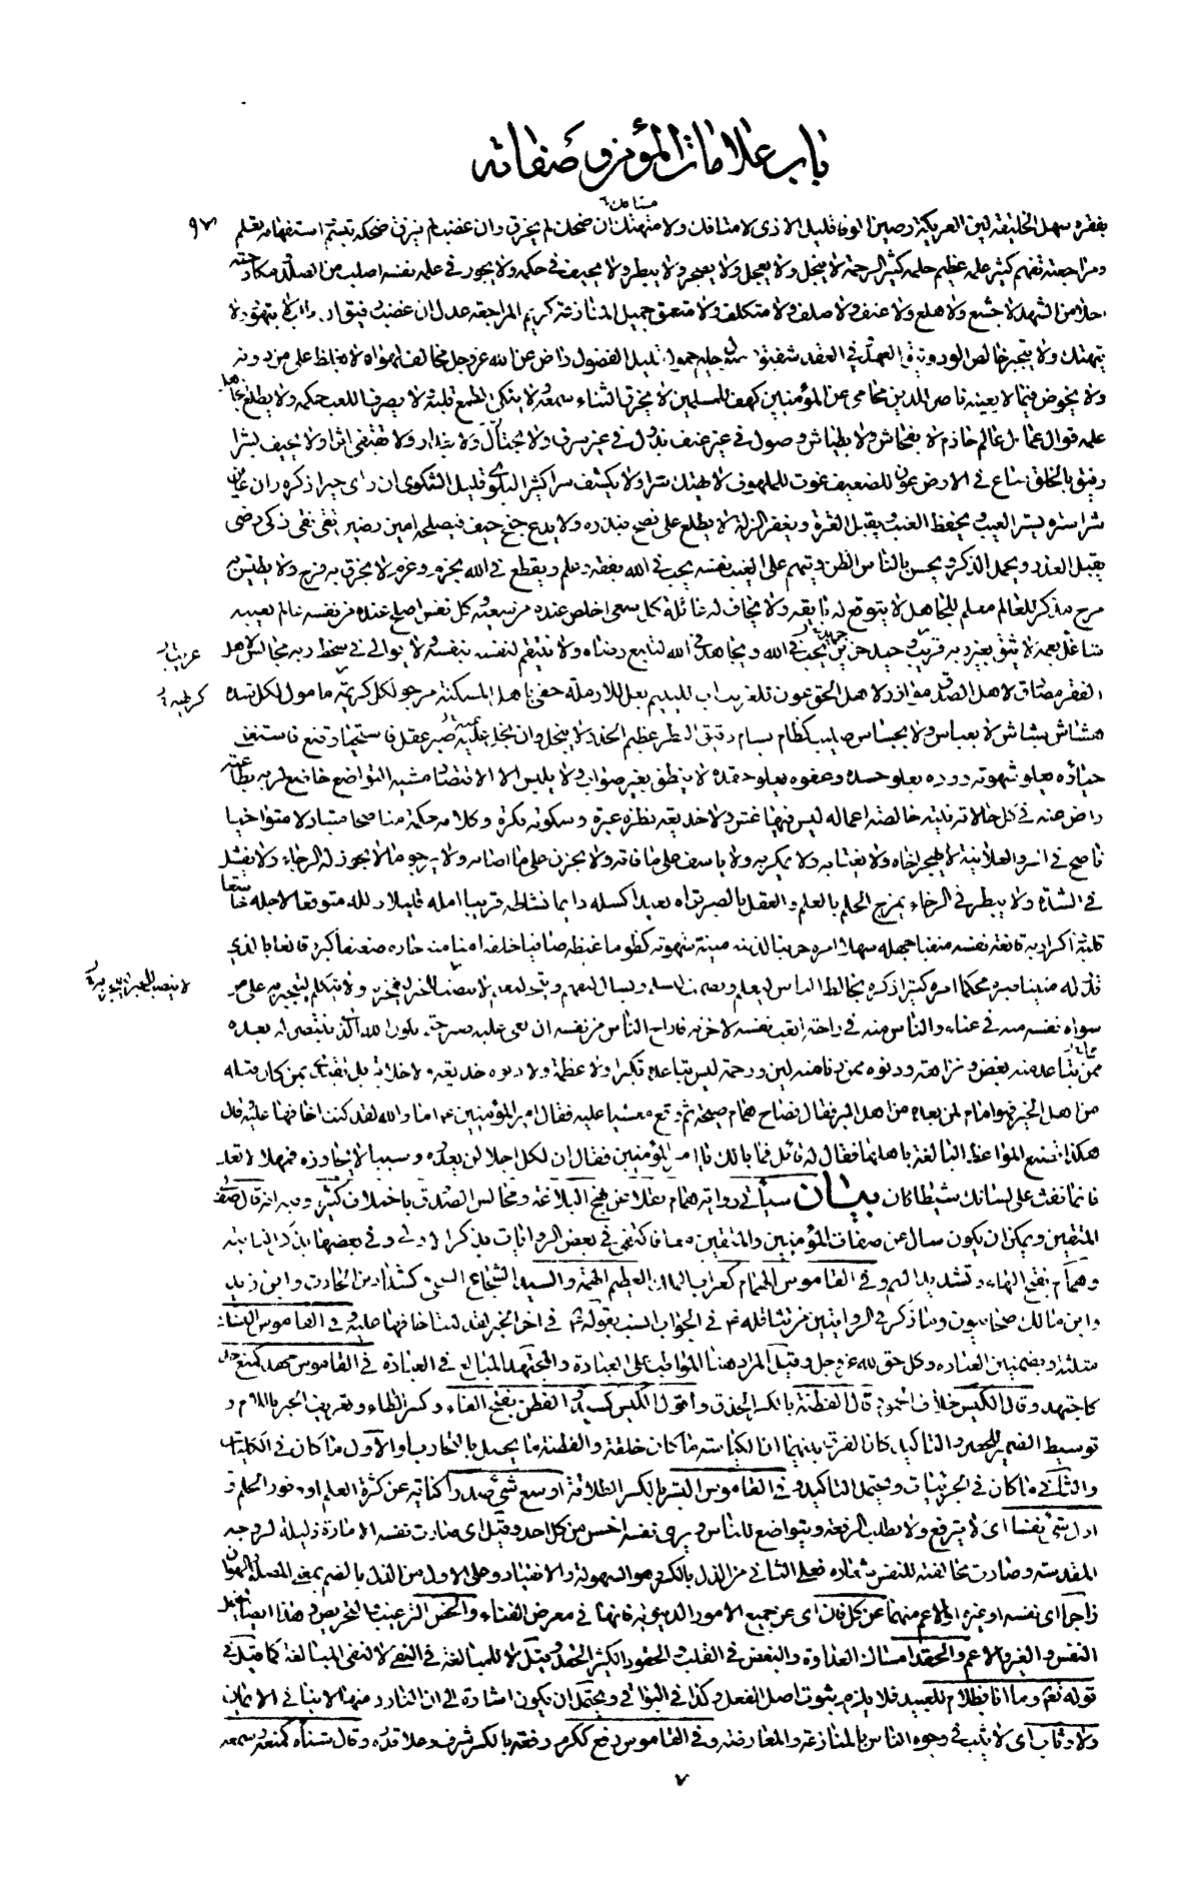 باب علامات المؤمن و صفاته
٩٧
بفقره سهل الخليقة لين العريكة رصين الوفا قليل الاذى لا متافك ولا متهتك ان ضحك لم يخرق وان غضب لم ينزق ضحكه تبسم استفهامه تعلم
ومراجعته تفهم كثير علمه عظيم حلمه كثير الرحمة لا يبخل ولا يعجل ولا يضجر ولا يبطر ولا يحيف في حكمه ولا يجور في علمه نفسه اصلب من الصلد ومكادحته
احلا من الشهد لا جشع ولا هلع ولا عنف ولا صلف ولا متكلف ولا متعمق جميل المنازعة كريم المراجعة عدل ان غضب رفيق ان طلب لا يتهور ولا
يتهتك ولا يتجبر خالص الود وثيق العهد وفي العقد شفيق وصول حليم حمول قليل الفضول راض عن الله عز وجل مخالف لهواه لا يغلظ على من دونه
ولا يخوض فيما لا يعينه ناصر للدين محامي عن المؤمنين كهف للمسلمين لا يخرق الثناء سمعه ولا ينكى الطمع قلبه لا يصرف اللعب حكمه ولا يطلع جاهل
علمه قوال عمال عالم حازم لا بفحاش ولا بطياش وصول في غير عنف بذول في غير سرف ولا بختال ولا بغدار ولا يقتفي اثرا ولا يحيف بشرا
رفيق بالخلق ساع في الارض عون للضعيف غوث للملهوف لا يهتك سترا ولا يكشف سرا كثير البلوى قليل الشكوى ان راى خيرا ذكره وان عاين
شرا ستره يستر العيب ويحفظ الغيب ويقيل العثرة ويغفر الزلة لا يطلع على نصح فيذره ولا يدع جنح حيف فيصلحه امين رصين تقي نقي زكي رضي
يقبل العذر ويجمل الذكر ويحسن بالناس الظن ويتهم على الغيب نفسه يحب في الله بفقه وعلم ويقطع في الله بحزم وعزم لا يخرق به فرح ولا يطيش به
مرح مذكر للعالم معلم للجاهل لا يتوقع له بايقه ولا يخاف له غائلة كل سعى اخلص عنده من سعيه وكل نفس اصلح عنده من نفسه عالم بعيبه
شاغل بغمه لا يثق بغير ربه قريب وحيد حزين يحب في الله ويجاهد في الله ليتبع رضاه ولا ينتقم لنفسه بنفسه ولا يوالي في سخط ربه مجالس لاهل
الفقر مصادق لاهل الصدق موازر لاهل الحق عون للغريب اب لليتيم بعل للارملة حفي باهل المسكنة مرجو لكل كريهة مامول لكل شدة
هشاش بشاش لا بعباس ولا بجساس صليب كظام بسام دقيق النظر عظيم الحذر لا يبخل وان بخل عليه صبر عقل فاستحيا وقنع فاستغنى
حياؤه يعلو شهوته ووده يعلو حسده وعفوه يعلو حقده لا ينطق بغير صواب ولا يلبس الا الاقتصاد مشيه التواضع خاضع لربه بطاعته
راض عنه في كل حالاته نيته خالصة اعماله ليس فيها غش ولا خديعة نظره عبرة وسكوته فكرة وكلامه حكمة مناصحا متباذلا متواخيا
ناصح في السر والعلانية لا يهجر اخاه ولا يغتابه ولا يمكر به ولا ياسف على ما فاته ولا يحزن على ما اصابه ولا يرجو ما لا يجوز له الرجاء ولا يفشل
في الشدة ولا يبطر في الرخاء يمزج الحلم بالعلم والعقل بالصبر تراه بعيدا كسله دايما نشاطه قريبا امله قليلا زلله متوقعا لاجله خاشعا
قلبه ذاكرا ربه قانعة نفسه منفيا جهله سهلا امره حزينا لذنبه ميتة شهوته كظوما غيظه صافيا خلقه امنا منه جاره ضعيفا كبره قانعا بالذي
قدر له متينا صبره محكما امره كثيرا ذكره يخالط الناس ليعلم ويصمت ليسلم ويسال ليفهم ويتجر ليغنم لا ينصت للخير ليفخر به ولا يتكلم ليتجبر به على من
سواه نفسه منه في عناء والناس منه في راحة اتعب نفسه لاخرته فاراح الناس من نفسه ان بغي عليه صبر حتى يكون الله الذي ينتصر له بعده
ممن تباعد منه بغض ونزاهة ودنوه ممن دنا منه لين ورحمة ليس تباعده تكبرا ولا عظمة ولا دنوه خديعة ولا خلابة بل يقتدي بمن كان قبله
من اهل الخير فهو امام لمن بعده من اهل البر فقال فصاح همام صيحة ثم وقع مغشيا عليه فقال امير المؤمنين ع اما والله لقد كنت اخافها عليه وقال
هكذا تصنع المواعظ البالغة باهلها فقال له قائل فما بالك يا امير المؤمنين فقال ان لكل اجلا لن يعدوه وسببا لا يتجاوزه فمهلا لا تعد
فانما نفث على لسانك شيطان بيان سياتي رواية همام نقلا عن نهج البلاغة ومجالس الصدوق باختلاف كثير وفيه انه قال صف
المتقين ويمكن ان يكون سال عن صفات المؤمنين والمتقين معا فاكتفى في بعض الروايات بذكر الاولى وفي بعضها بذكر الثانية
وهمام بفتح الهاء وتشديد الميم وفي القاموس الهمام كغراب الملك العظيم الهمة والسيد الشجاع السخي وكشداد بن الحارث وابن زيد
وابن مالك صحابيون وما ذكر في الروايتين من تثاقله ع في الجواب انسب بقوله ع في اخر الخبر لقد كنت اخافها عليه وفي القاموس النسك
مثلثة وبضمتين العبادة وكل حق لله عز وجل وقيل المراد هنا المواظب على العبادة والمجتهد المبالغ في العبادة في القاموس جهد كمنع جد
كاجتهد وقال الكيس خلاف الحمق وقال الفطنة بالكسر الحذق واقول الكيس كسيد والفطن بفتح الفاء وكسر الطاء وتعريف الخبر باللام و
توسيط الضمير للحصر والتاكيد كان الفرق بينهما ان الكياسة ما كان خلقة والفطنة ما يحصل بالتجارب او الاول ما كان في الكليات
والثاني ما كان في الجزئيات ويحتمل التاكيد وفي القاموس البشر بالكسر الطلاقة اوسع شيء صدرا كناية عن كثرة العلم او وفور الحلم و
اذل شيء نفسا اي لا يترفع ولا يطلب الرفعة ويتواضع للناس ويرى نفسه اخس من كل احد وقيل اي صارت نفسه الامارة ذليلة لروحه
المقدسة وصارت مخالفته للنفس شعاره فعلى الثاني من الذل بالكسر وهو السهولة والانقياد وعلى الاول من الذل بالضم بمعنى المذلة والهوان
زاجر اي نفسه او غيره او الاعم منهما عن كل فان اي عن جميع الامور الدنيوية فانها في معرض الفناء والحض الترغيب والتحريص وهذا ايضا يحتمل
النفس والغير والاعم والحقد امساك العداوة والبغض في القلب والحقود الكثير الحقد وقيل لا للمبالغة في النفي لا لنفي المبالغة كما قيل في
قوله تعالى وما انا بظلام للعبيد فلا يلزم ثبوت اصل الفعل وكذا في البواقي ويحتمل ان يكون اشارة الى ان النادر منها لا ينافي الايمان
ولا وثاب اي لا يثب في وجوه الناس بالمنازعة والمعارضة وفي القاموس رفع ككرم رفعة بالكسر شرف وعلا قدره وقال شناه كمنعه وسمعه
٧